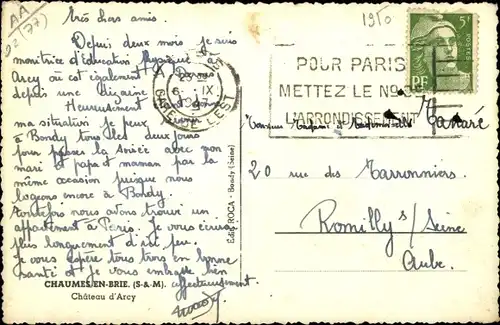 AA
92 (77)
1950
très chers amis.
Depuis deux mois je suis
monitrice d'éducation Physique à
Arcy où est également
depuis une dizaine
Heureusement
ma situation je peux
à Bondy tous les deux jours
pour passer la soirée avec mon
mari et papa et maman par la
même occasion puisque nous
logeons encore à Bondy.
toutefois nous avons trouvé un
appartement à Paris. Je vous écrirai
plus longuement d'ici peu.
je vous espère tous trois en bonne
santé et je vous embrasse bien
affectueusement
CHAUMES-EN-BRIE. (S.&M.)
Château d'Arcy
Edit. ROCA - Bondy (Seine)
PARIS
6 - IX
GARE DE L'EST
POUR PARIS
METTEZ LE Nº
L'ARRONDISSEMENT
5F
POSTES
RF
Monsieur Madame et Mademoiselle
20 rue des Marronniers
Romilly s/ Seine
Aube.